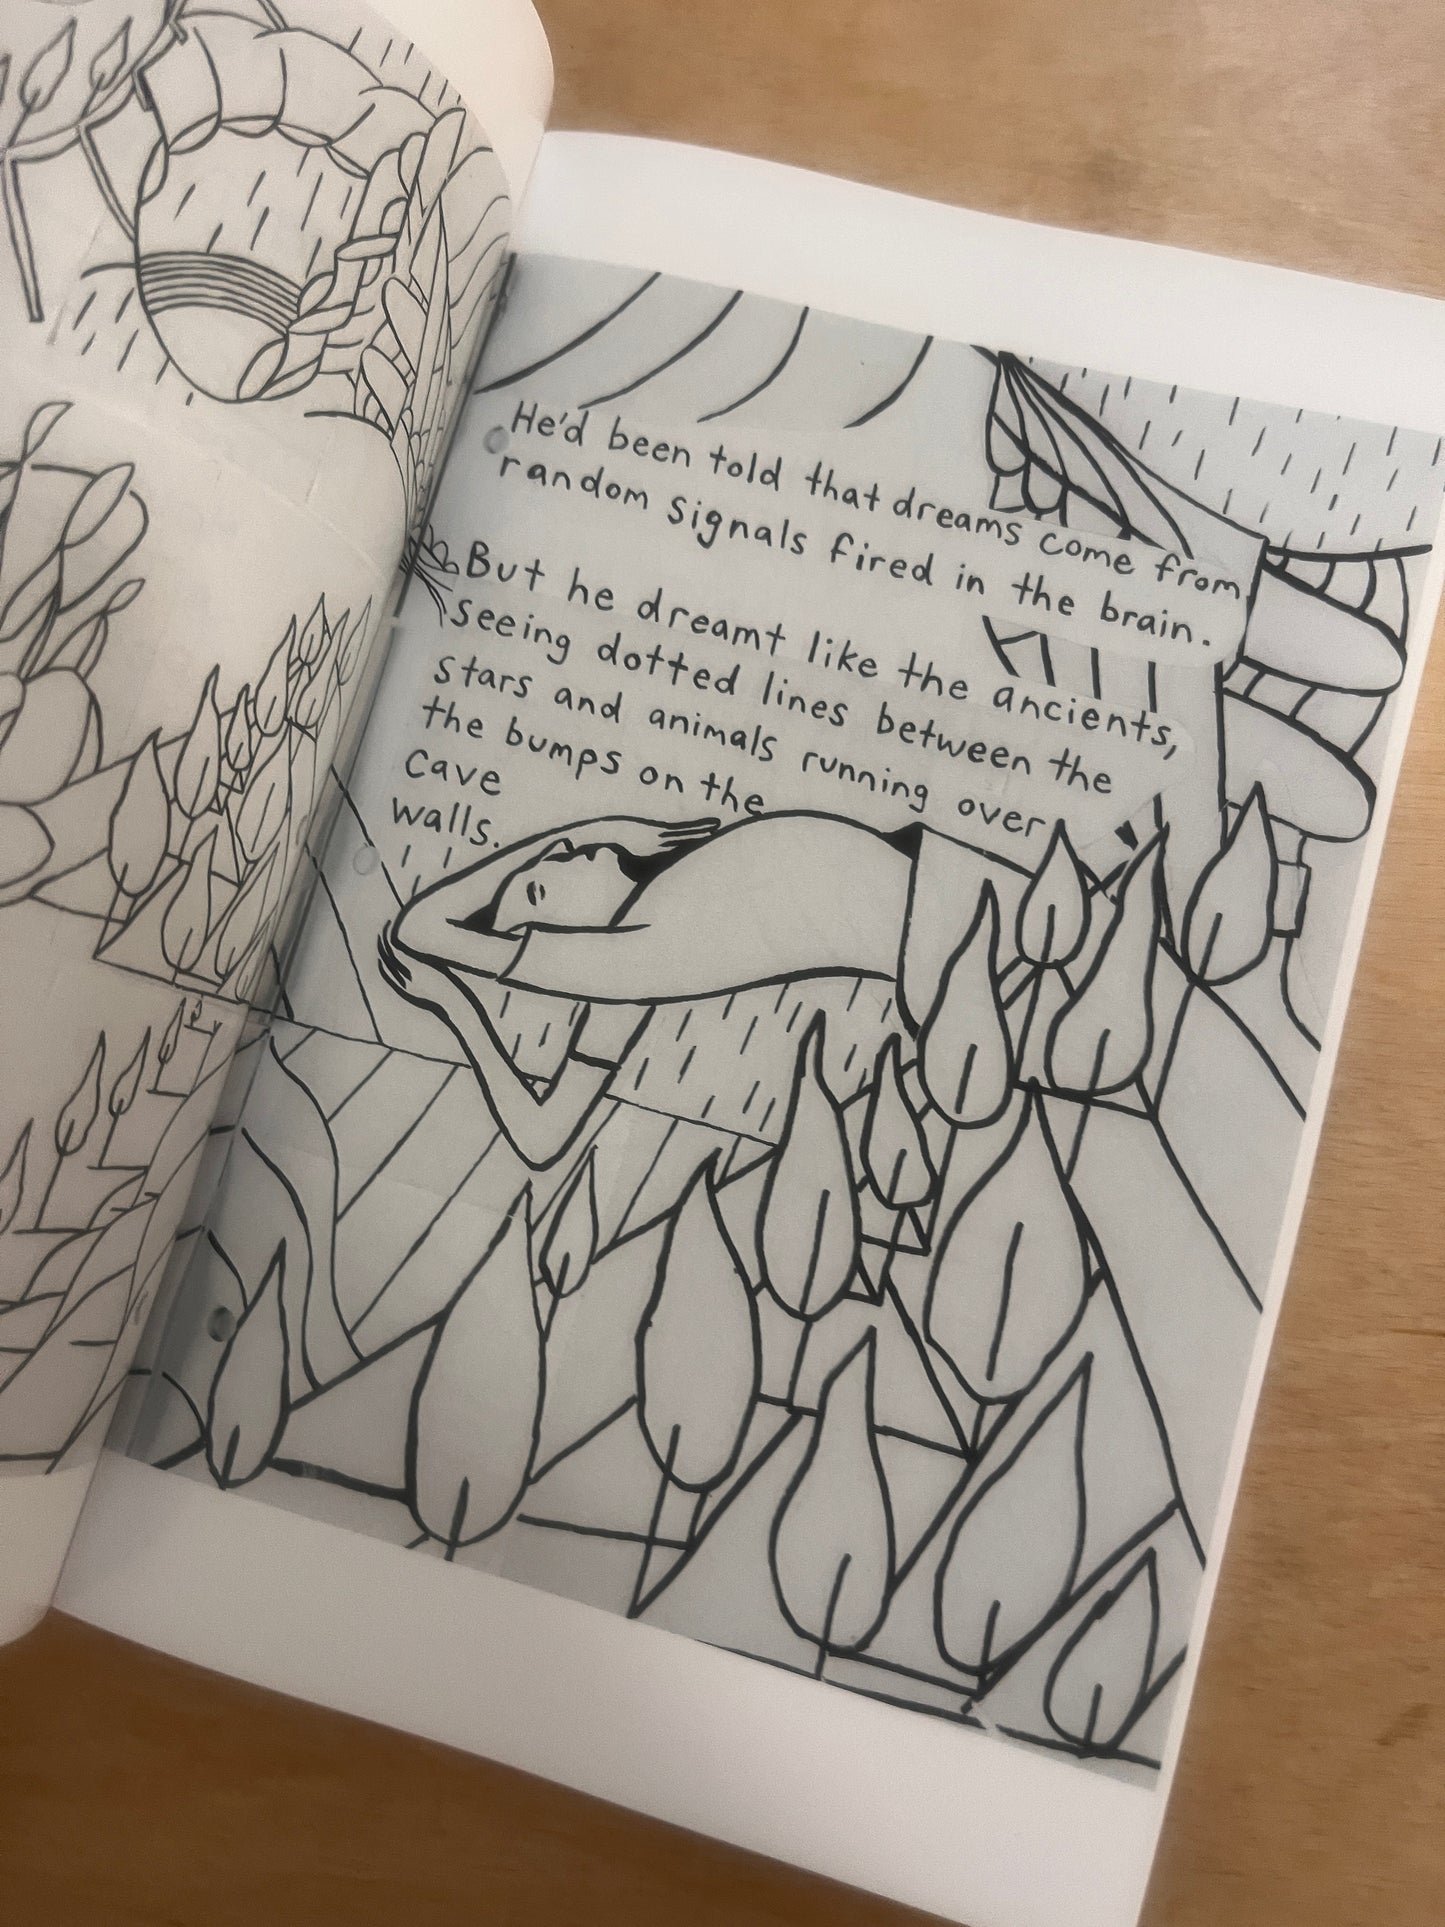 He'd been told that dreams come from
random signals fired in the brain.
But he dreamt like the ancients,
seeing dotted lines between the
stars and animals running over
the bumps on the
cave
walls.